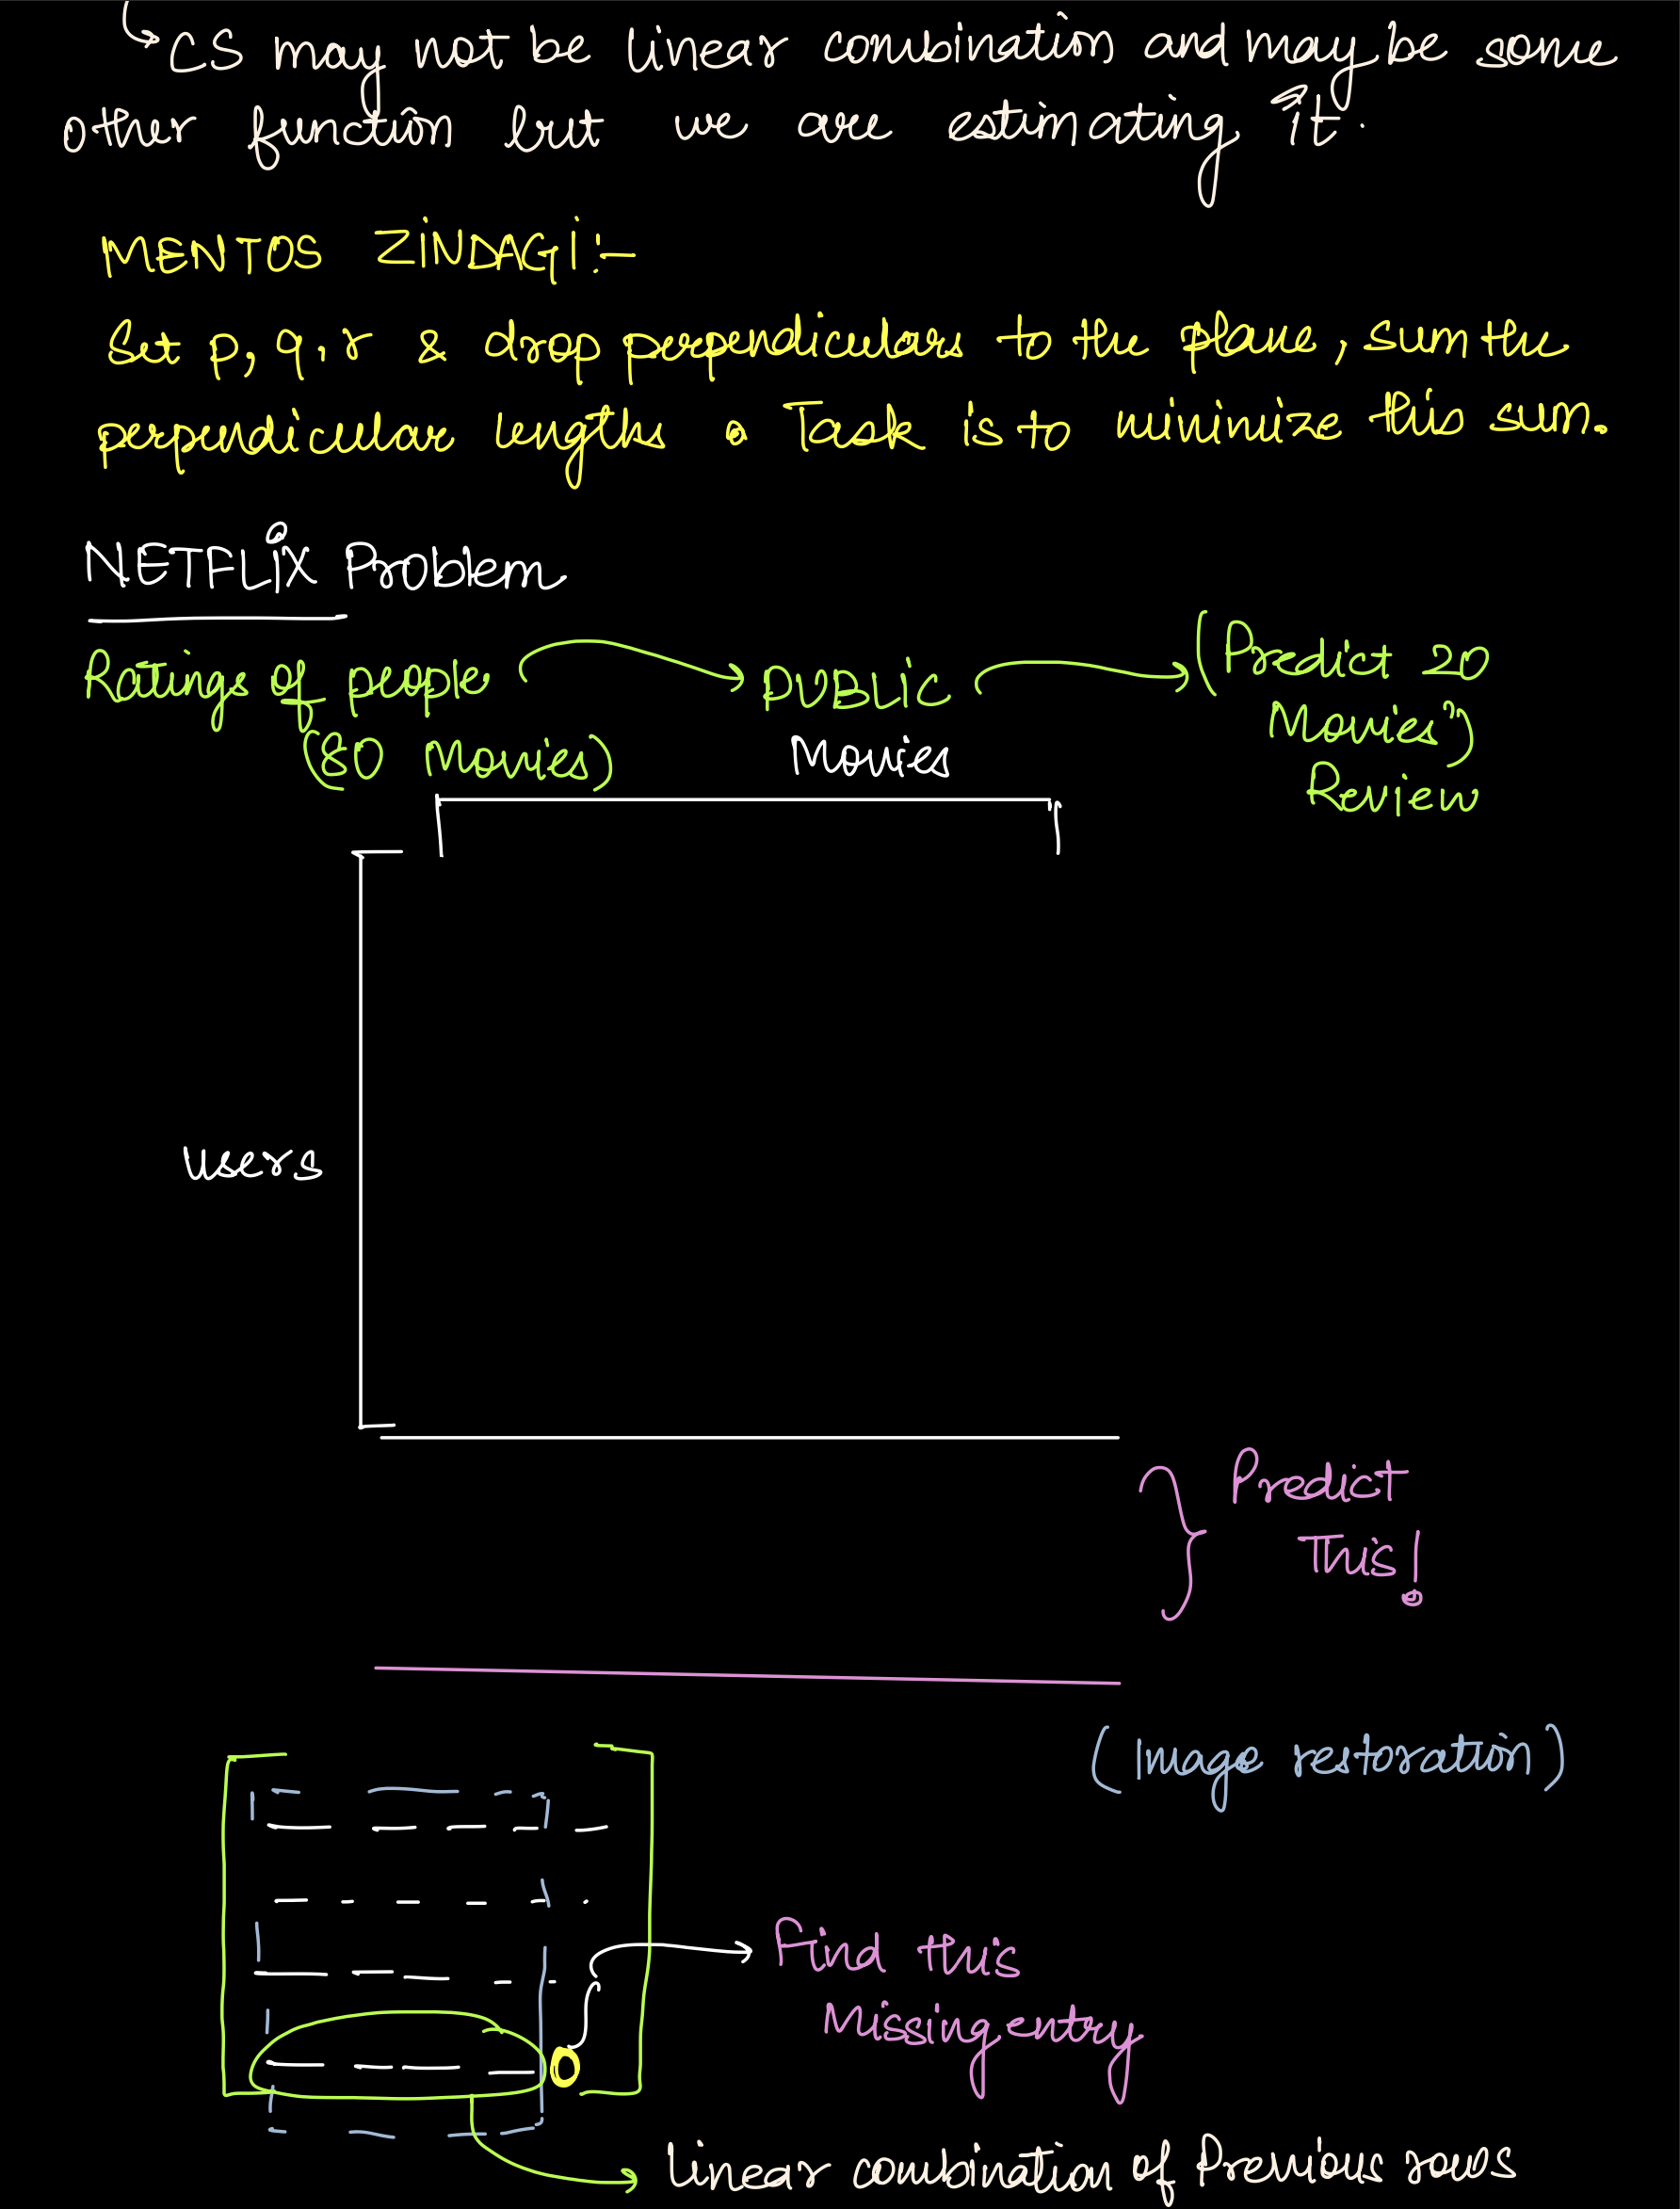 CS may not be linear combination and may be some
other function but we are estimating it.
MENTOS ZINDAGI:-
Set p, q, r & drop perpendiculars to the plane, sum the
perpendicular lengths. Task is to minimize this sum.
NETFLIX Problem
Ratings of people
(80 Movies)
PUBLIC
(Predict 20
Movies")
Review
Movies
users
Predict
This!
(Image restoration)
Find this
Missing entry
linear combination of Previous rows